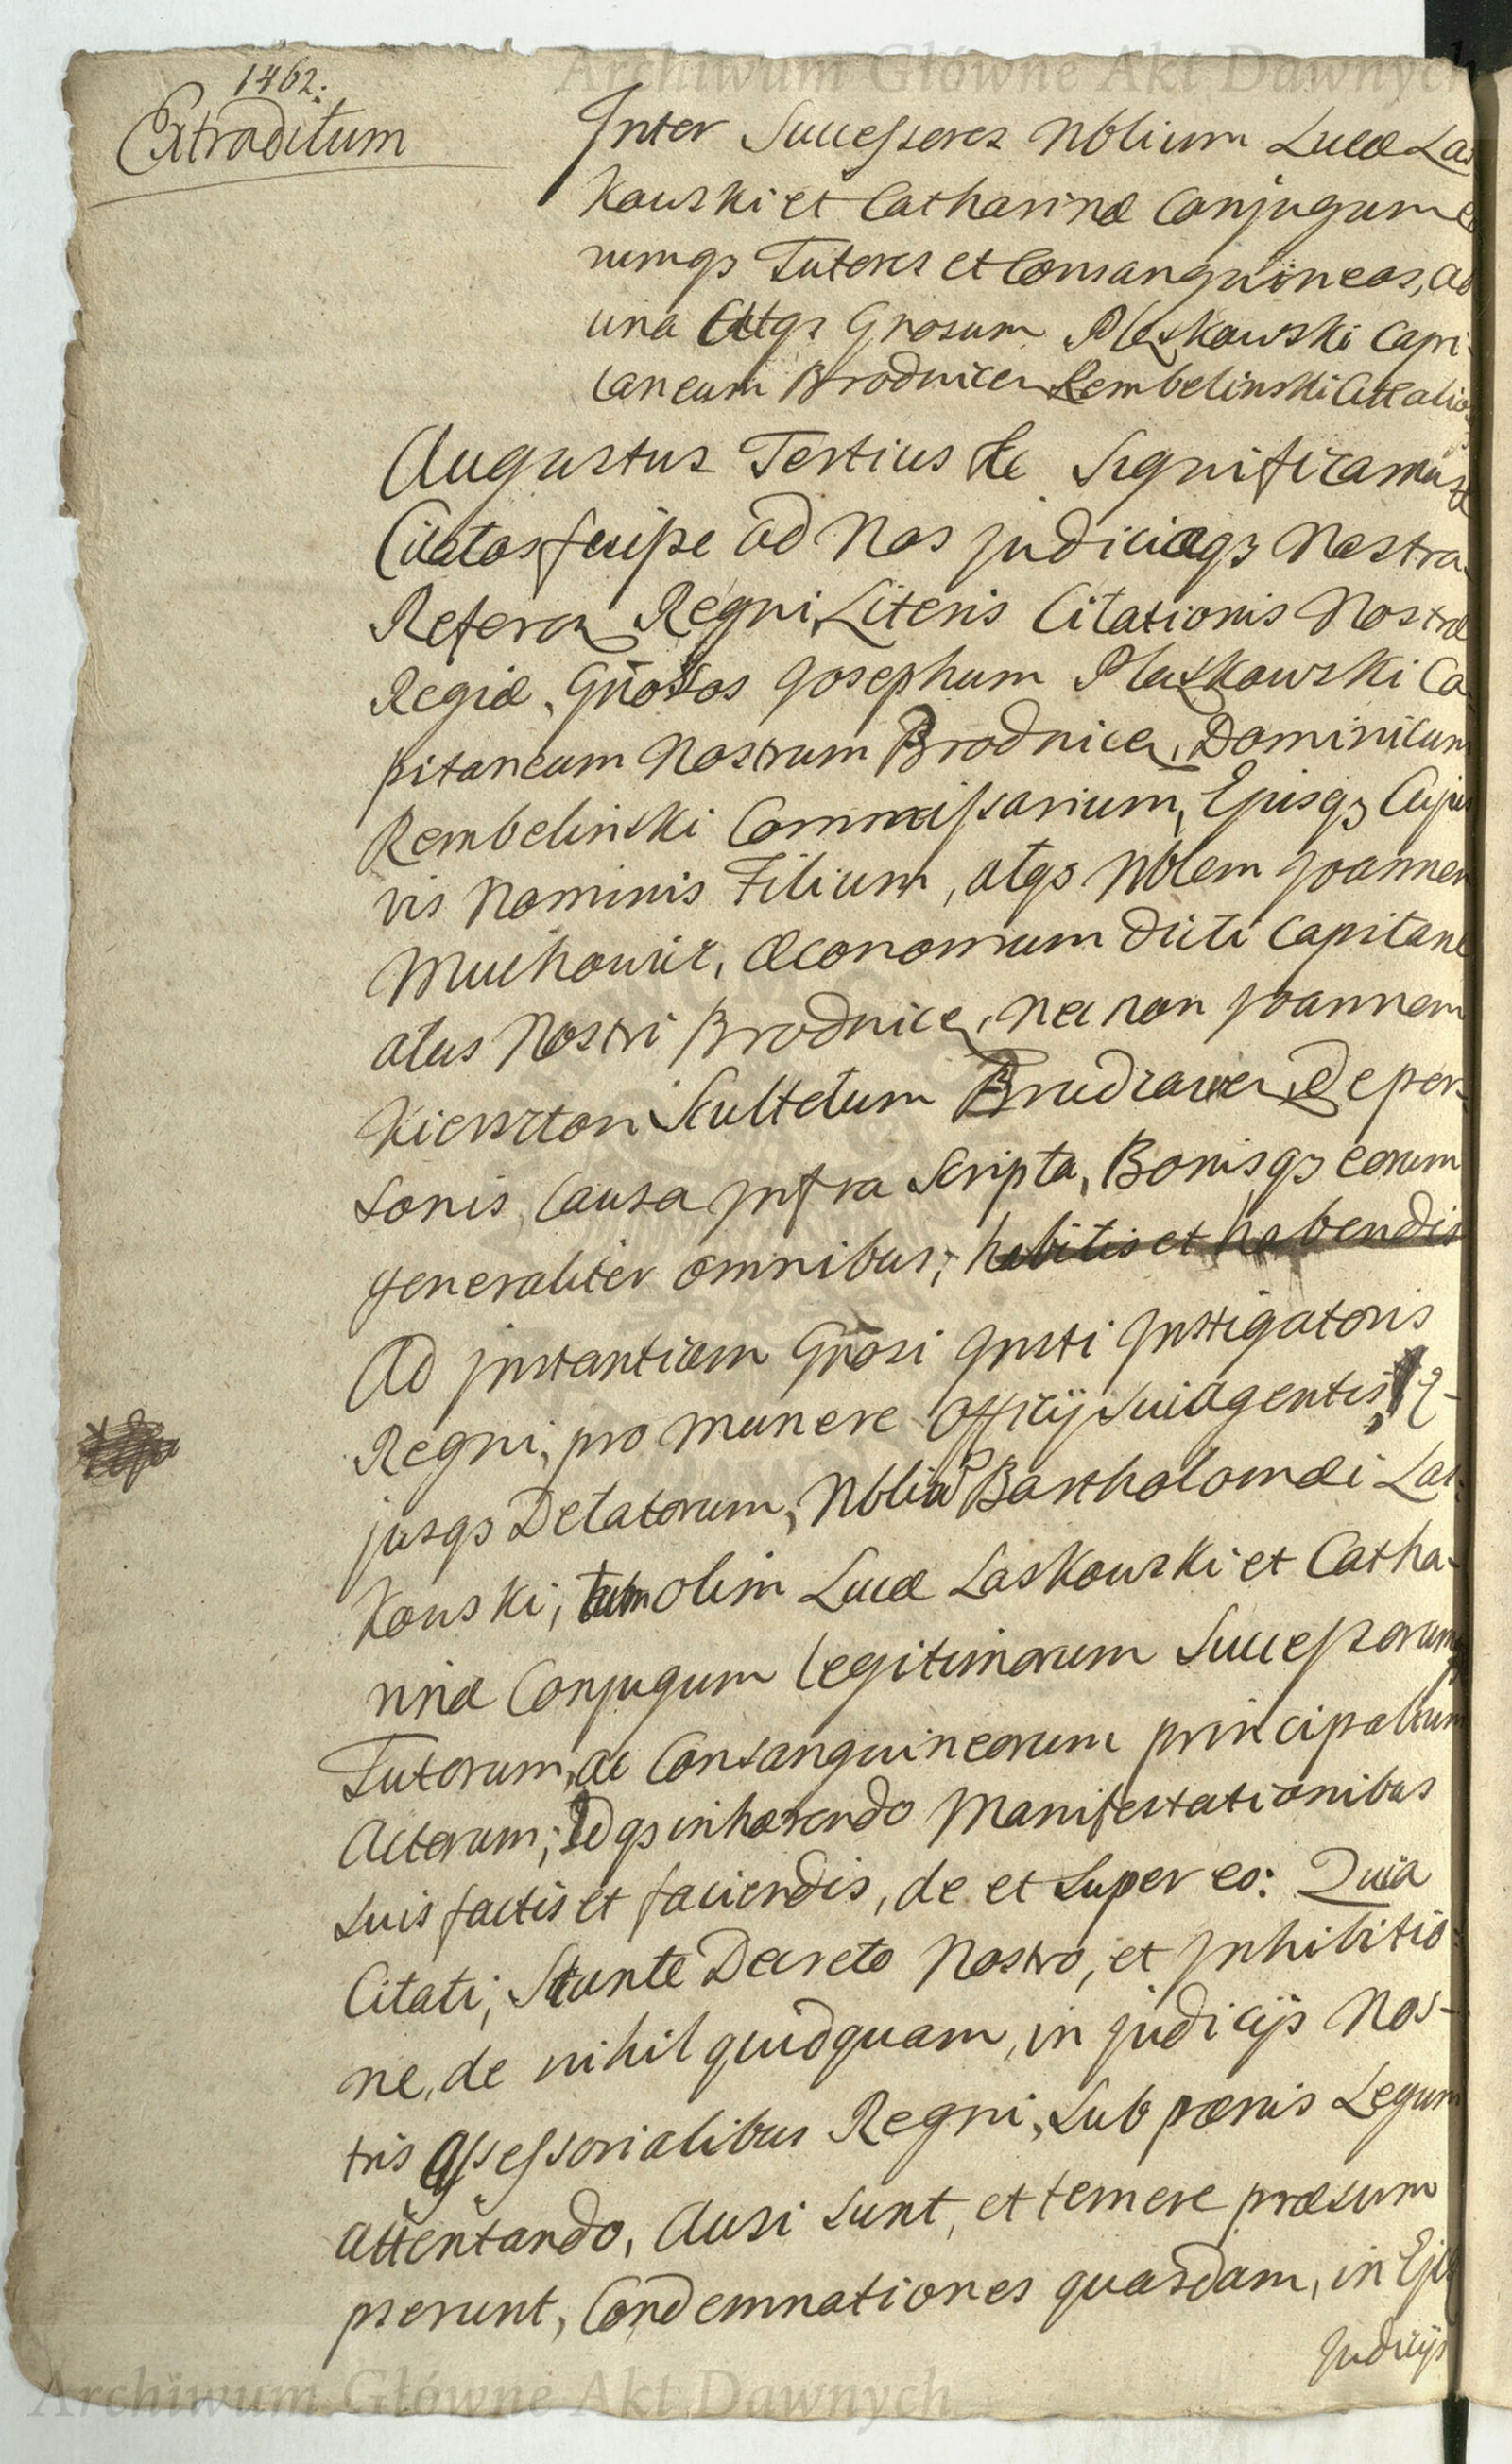 Archiwum Główne Akt Dawnych
1462:
Extraditum
Inter Successores Nblium Lucæ Las
kowski et Catharinæ Conjugum eo
rumqз Tutores et Consanguineos, ab
una atqз Gnosum Pląskowski Capi-
taneum Brodnicen Rembelinski Ctt alios
Augustus Tertius etc Significamus
Citatos fuisse ad Nos Judiciaqз Nostra
Referen Regni, Literis Citationis Nostræ
Regiæ, Gnosos Josephum Pląskowski Ca-
pitaneum Nostrum Brodnicen, Dominicum
Rembelinski Commissarium, Ejusqз Cujus
vis Nominis Filium, atqз Nblem Joannem
Muchowic, Œconomum dicti Capitane
atus Nostri Brodnicen, nec non Joannem
Kierszton Scultetum Brudzawen, De per-
sonis, Causa Infra Scripta, Bonisqз eorum
generaliter omnibus; habitis et habendis
Ad Instantiam Gnosi Insti Instigatoris
Regni, pro munere Officij sui agentis, E-
jusqз Delatorum, Nblium Bartholomæi Las-
kowski, tum olim Lucæ Laskowski et Catha-
rinæ Conjugum legitimorum Successorum,
Tutorum, ac Consanguineorum principalium
Actorum; Idqз inhærendo Manifestationibus
suis factis et faciendis, de et super eo: Quia
Citati, Stante Decreto Nostro, et Inhibitio-
ne, de nihil quidquam, in Judicijs Nos-
tris Assessorialibus Regni, sub pœnis Legum
attentando, Ausi sunt, et temere præsum
pserunt, Condemnationes quasdam, in Ejus
Judicijs
Archiwum Główne Akt Dawnych